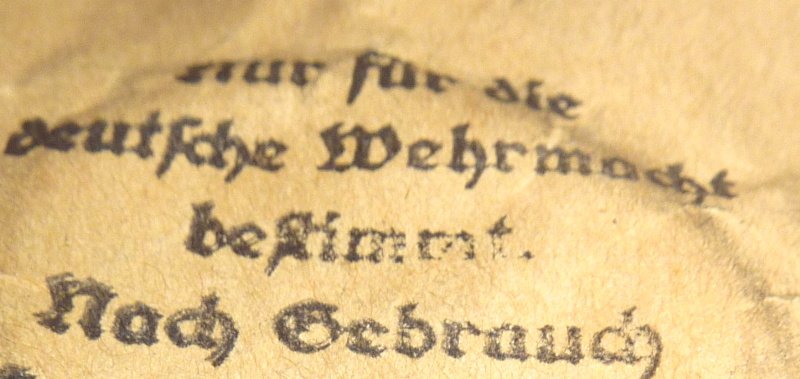 nur für die
deutsche Wehrmacht
bestimmt.
Nach Gebrauch